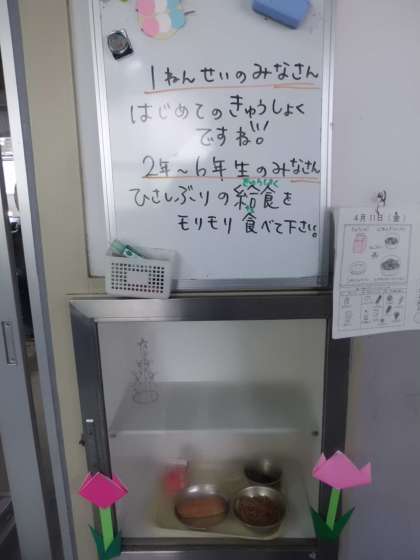 1ねんせいのみなさん
はじめてのきゅうしょく
ですね!!
2年~6年生のみなさん
きゅうしょく
ひさしぶりの給食を
た
モリモリ食べて下さい。
4月11日(金)